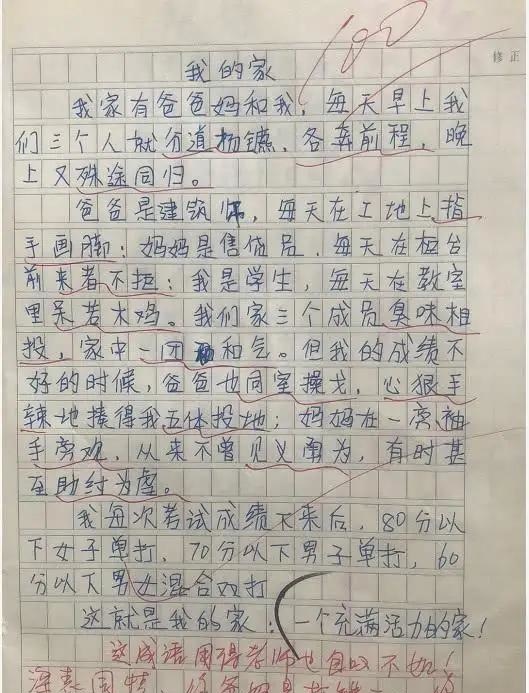 100
修正
我的家
我家有爸爸妈和我，每天早上我
们三个人就分道杨镳，各奔前程，晚
上又殊途同归。
爸爸是建筑师，每天在工地上指
手画脚；妈妈是售货员，每天在柜台
前来者不拒；我是学生，每天在教室
里呆若木鸡。我们家三个成员臭味相
投，家中一团和气。但我的成绩不
好的时候，爸爸也同室操戈，心狠手
辣地揍得我五体投地；妈妈在一旁袖
手旁观，从来不曾见义勇为，有时甚
至助纣为虐。
我每次考试成绩下来后，80分以
下女子单打，70分以下男子单打，60
分以下男女混合双打
这就是我的家：一个充满活力的家！
这成语用得老师也自叹不如！